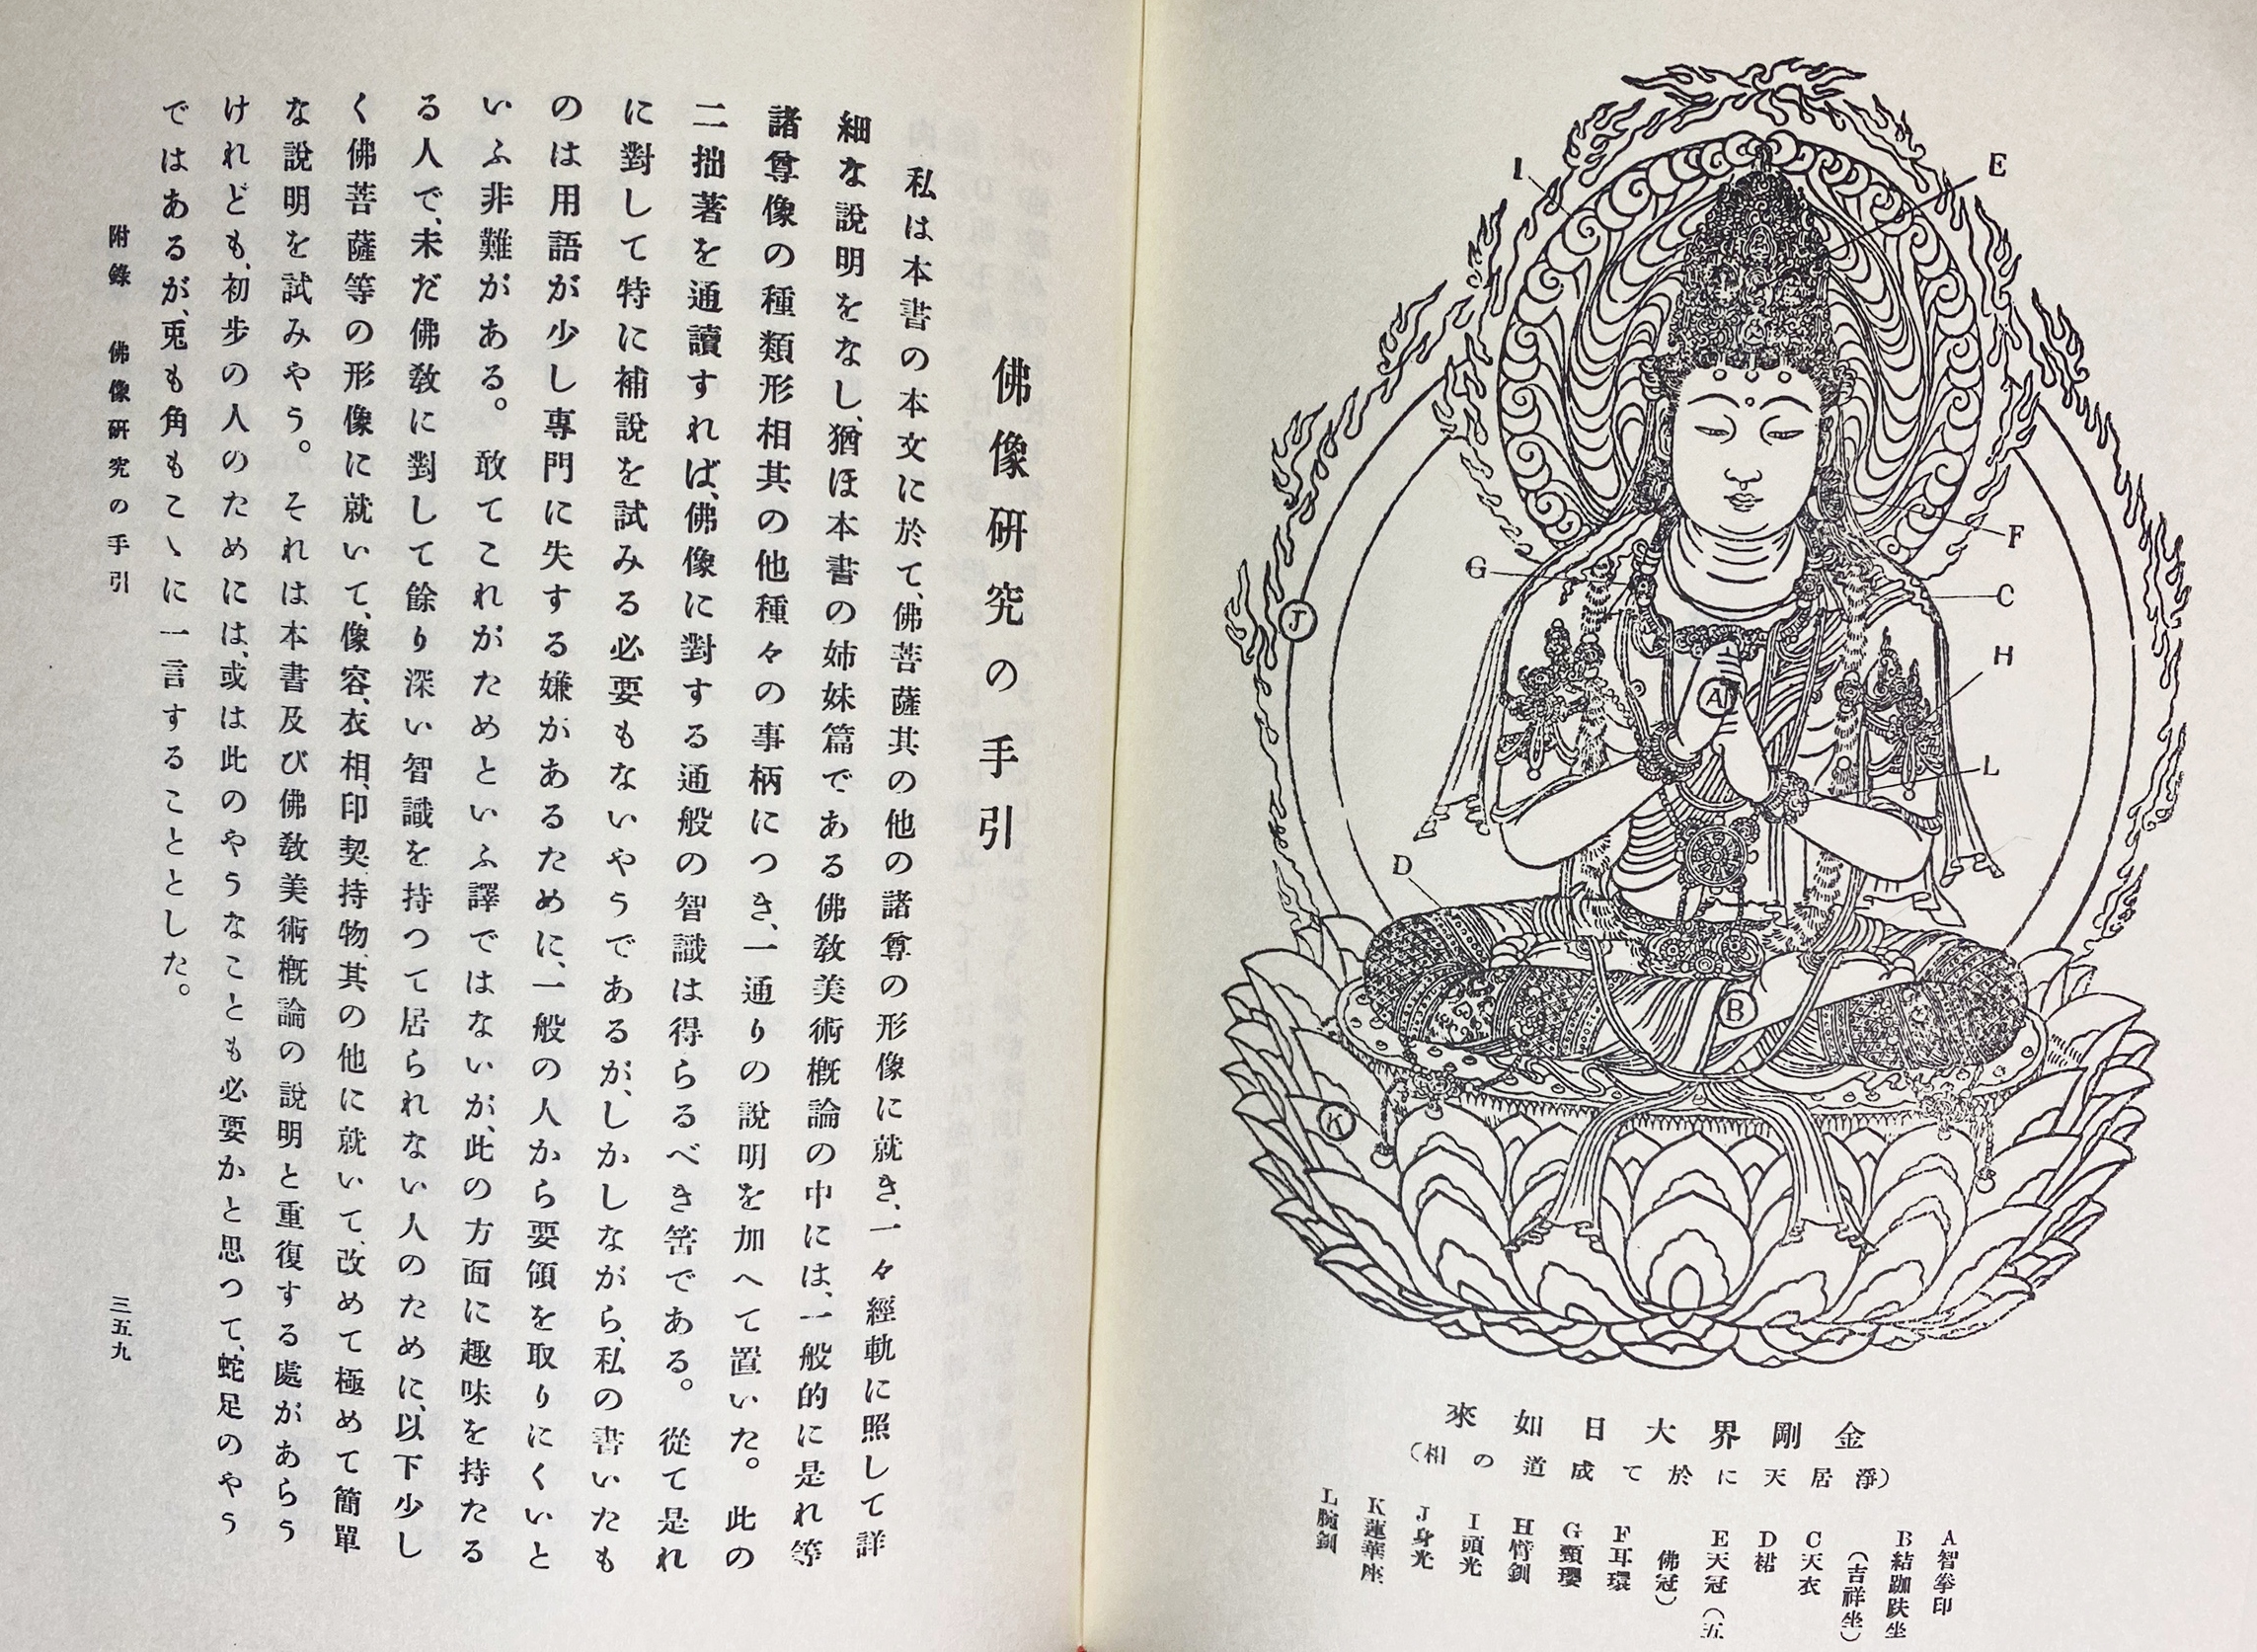 I
E
F
G
C
J
H
A
L
D
B
K
金剛界大日如來
(淨居天に於て成道の相)
A智拳印
B結跏趺坐
(吉祥坐)
C天衣
D裙
E天冠(五
佛冠)
F耳環
G頸瓔
H臂釧
I頭光
J身光
K蓮華座
L腕釧
佛像研究の手引
私は本書の本文に於て、佛菩薩其の他の諸尊の形像に就き、一々經軌に照して詳
細な說明をなし、猶ほ本書の姉妹篇である佛敎美術槪論の中には、一般的に是れ等
諸尊像の種類形相其の他種々の事柄につき、一通りの說明を加へて置いた。此の
二拙著を通讀すれば、佛像に對する通般の智識は得らるべき筈である。從て是れ
に對して特に補說を試みる必要もないやうであるが、しかしながら、私の書いたも
のは用語が少し專門に失する嫌があるために、一般の人から要領を取りにくいと
いふ非難がある。敢てこれがためといふ譯ではないが、此の方面に趣味を持たる
る人で、未だ佛敎に對して餘り深い智識を持つて居られない人のために、以下少し
く佛菩薩等の形像に就いて、像容、衣相、印契、持物、其の他に就いて、改めて極めて簡單
な說明を試みやう。それは本書及び佛敎美術槪論の說明と重復する處があらう
けれども、初步の人のためには、或は此のやうなことも必要かと思つて、蛇足のやう
ではあるが、兎も角もこゝに一言することとした。
附錄 佛像硏究の手引
三五九